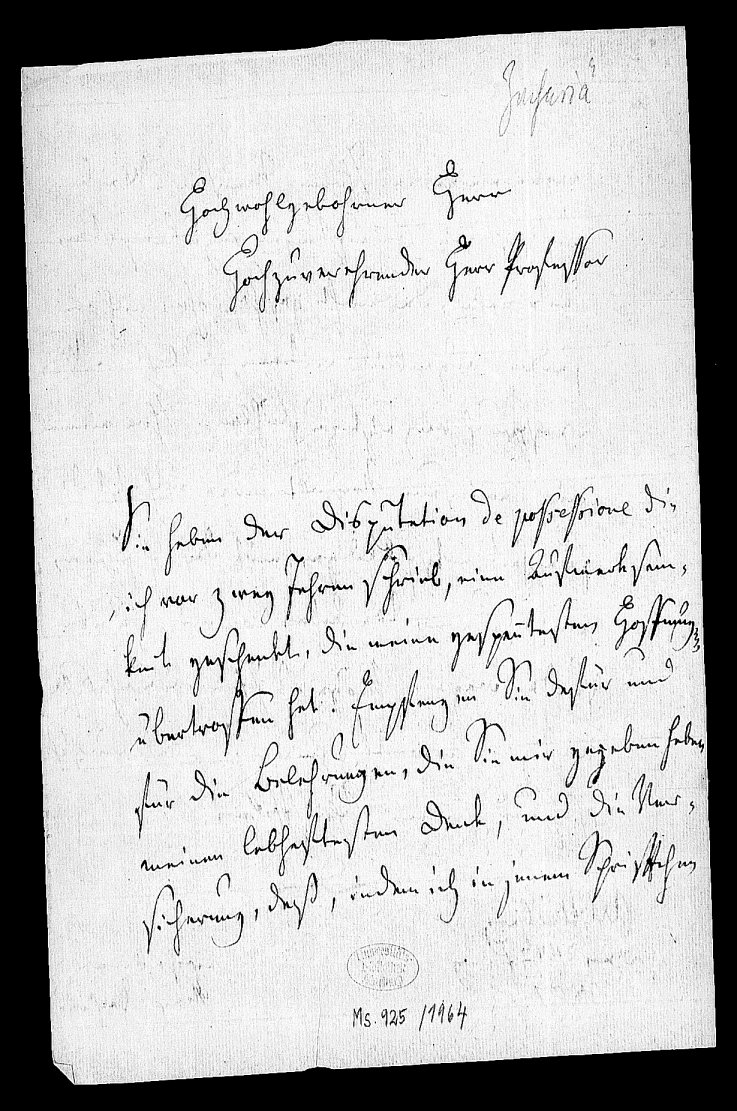 Zachariä
Hochwohlgebohrner Herr
Hochzuverehrender Herr Professor
Sie haben der Disputation de possessione die
ich vor zwey Jahren schrieb, eine Aufmerksam-
keit geschenkt, die meine gespanntesten Hoffnungen
übertroffen hat. Empfangen Sie dafür und
für die Belehrungen, die Sie mir gegeben haben
meinen lebhaftesten Dank, und die Ver-
sicherung, daß, indem ich in jenem Schriftchen
Ms. 925 /1964